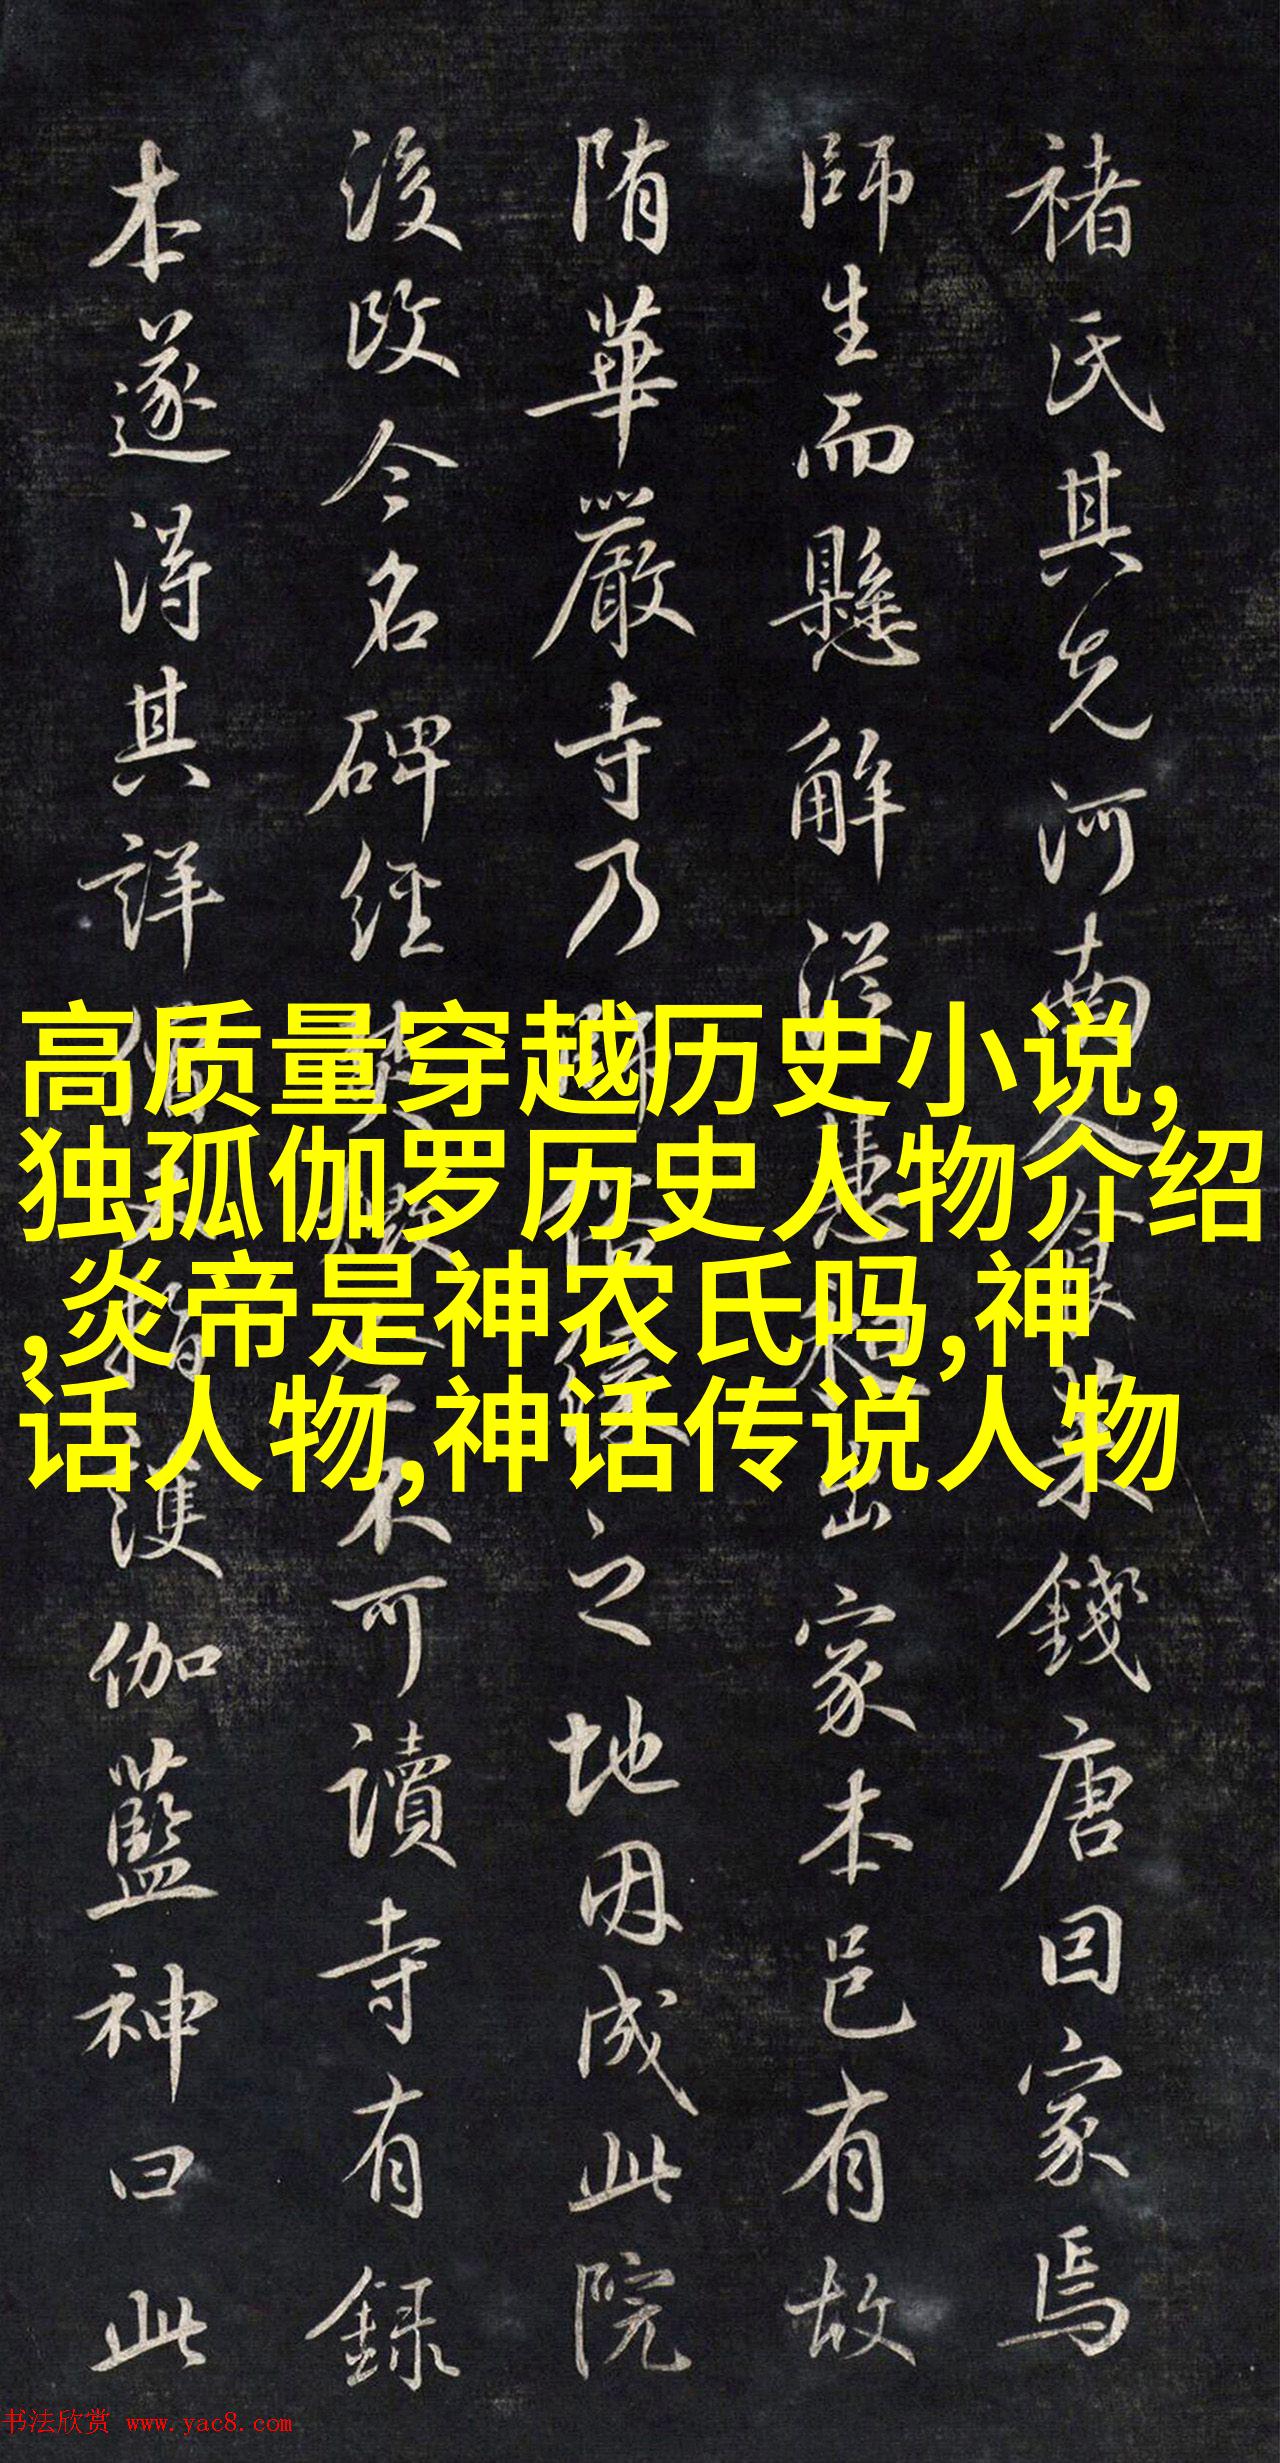 褚氏其先河南人食采錢唐回家焉
師生而懸解浴慧出家本邑有故
隋華嚴寺乃之地因成此院
後改今名碑經不可讀寺有録
本遂淂其詳護伽藍神曰此
高质量穿越历史小说,
独孤伽罗历史人物介绍
,炎帝是神农氏吗,神
话人物,神话传说人物
书法欣赏 www.yac8.com